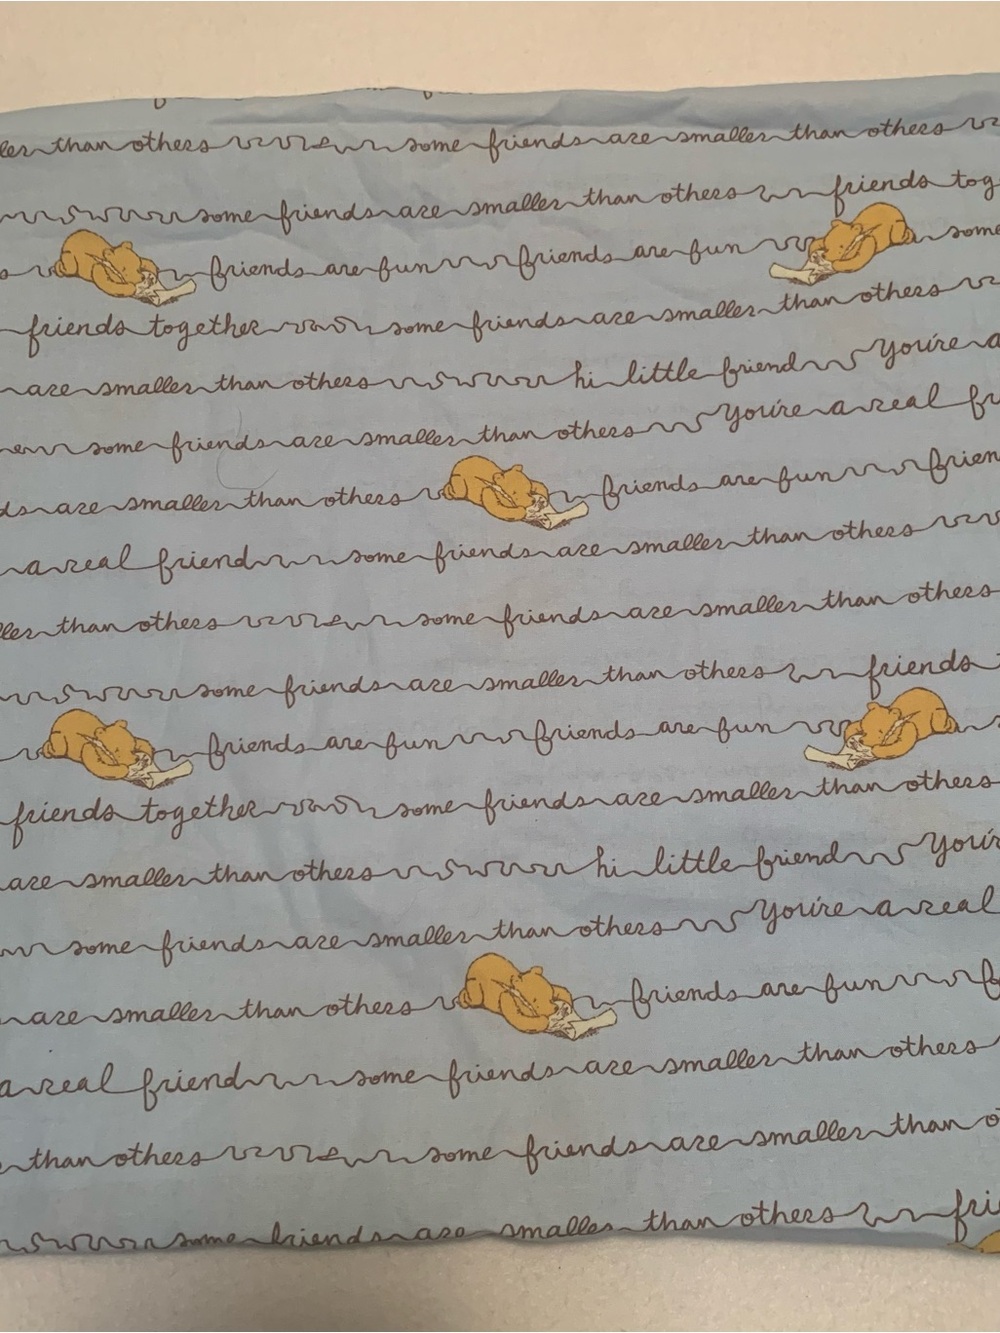 than others some friends are smaller than others
some friends are smaller than others friends
friends are fun friends are fun some
friends together some friends are smaller than others
are smaller than others hi little friend You're a
some friends are smaller than others You're a real
are smaller than others friends are fun
a real friend some friends are smaller than others
than others some friends are smaller than others
some friends are smaller than others friends
friends are fun friends are fun
friends together some friends are smaller than others
are smaller than others hi little friend You're
some friends are smaller than others You're a real
are smaller than others friends are fun
a real friend some friends are smaller than others
than others some friends are smaller than
some friends are smaller than others